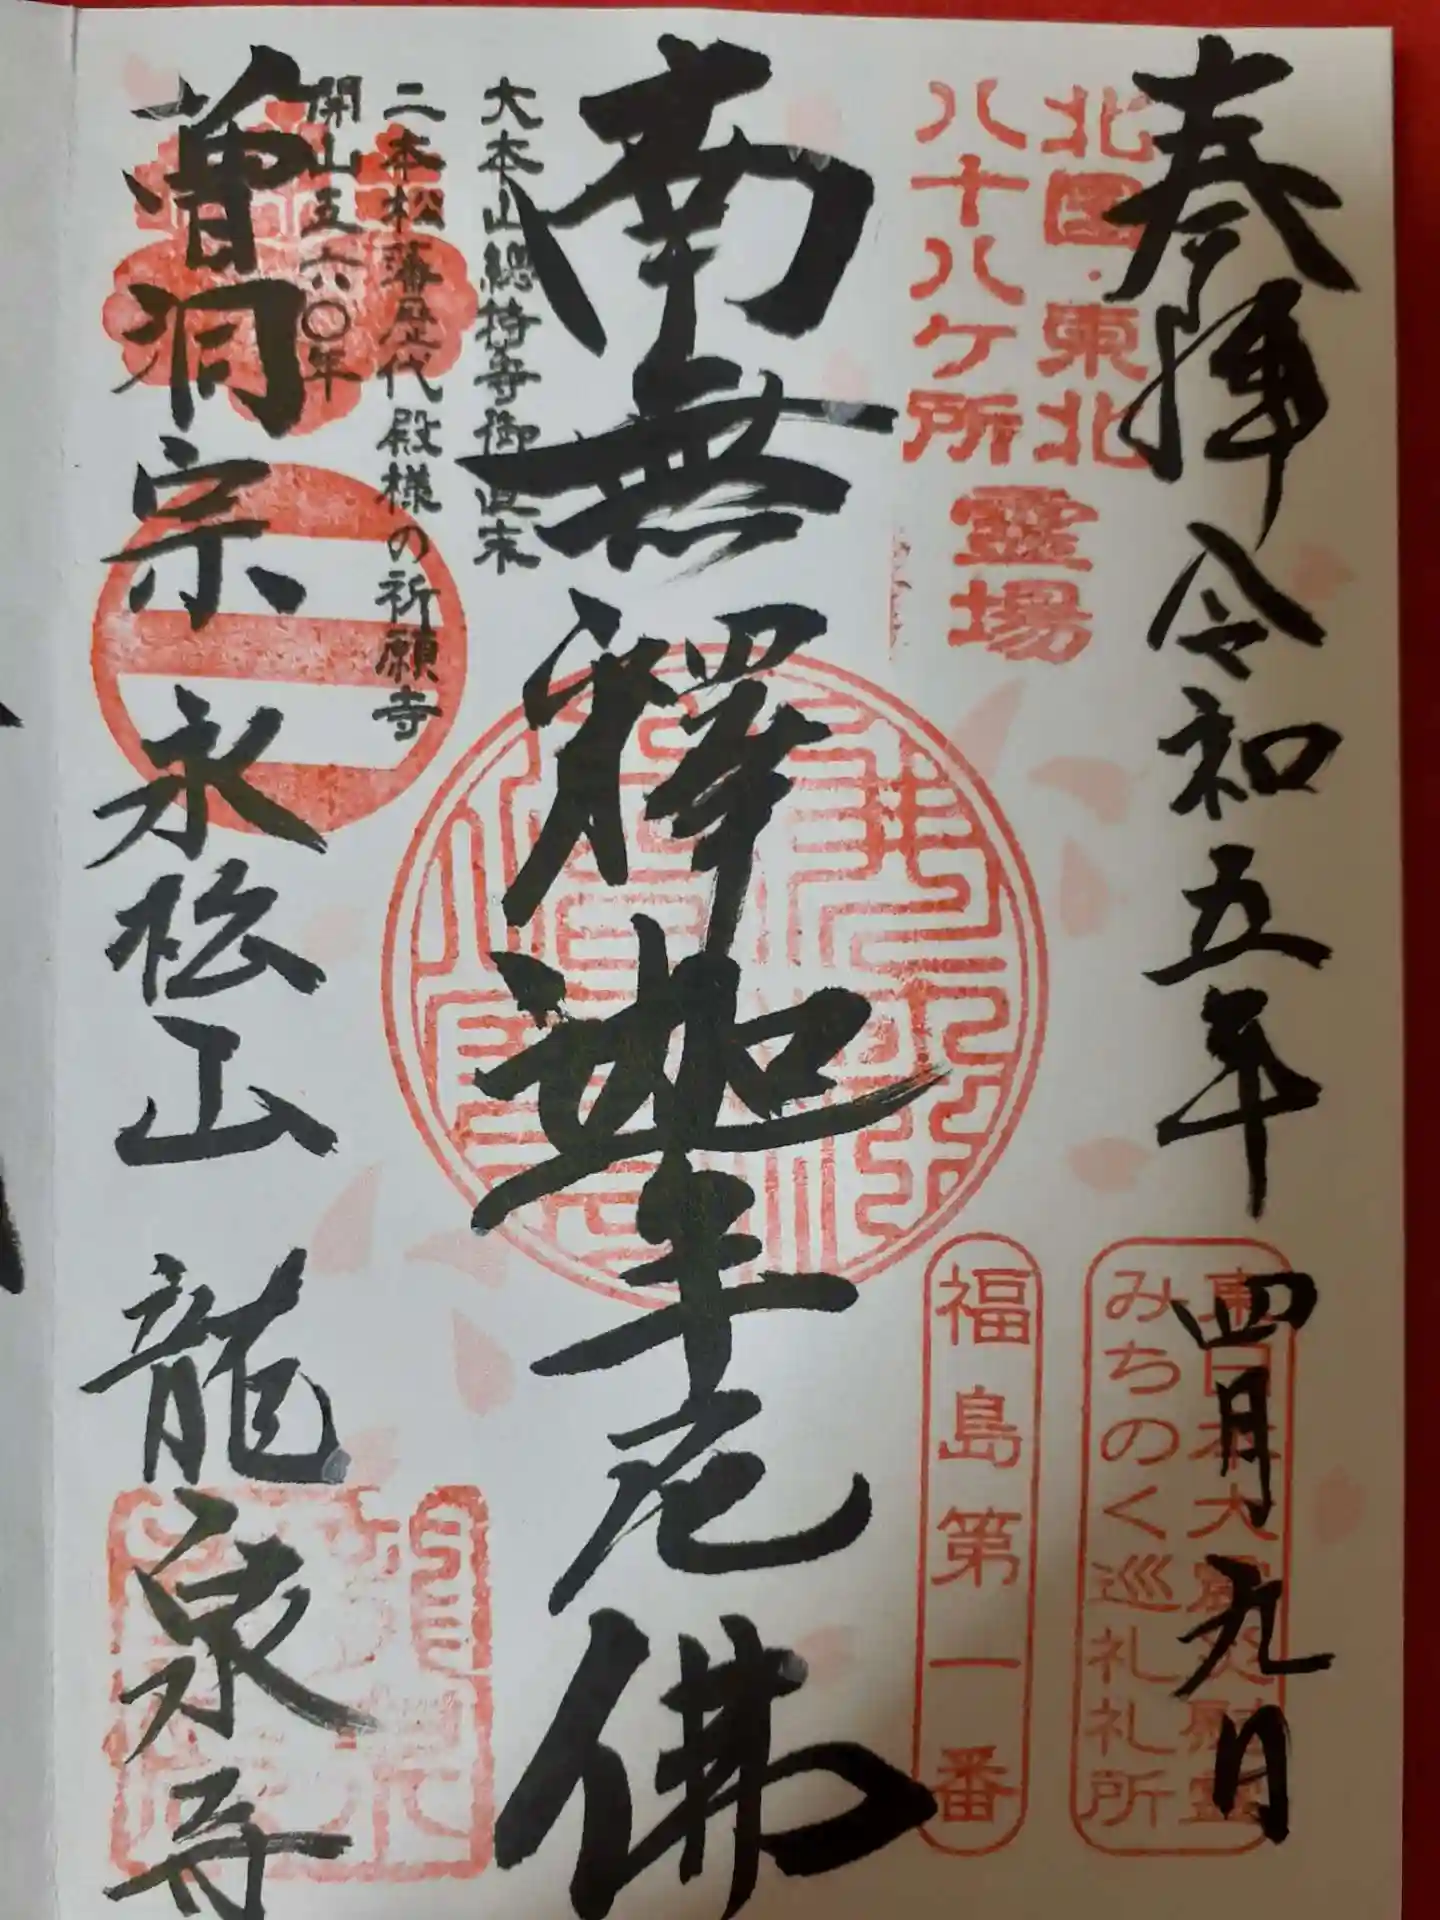 奉拝 令和五年 四月九日
北国・東北
八十八ケ所
霊場
東日本大震災慰霊
みちのく巡礼札所
福島第一番
南無釋迦牟尼佛
大本山總持寺御直末
二本松藩歴代殿様の祈願寺
開山五六〇年
曹洞宗 永松山 龍泉寺